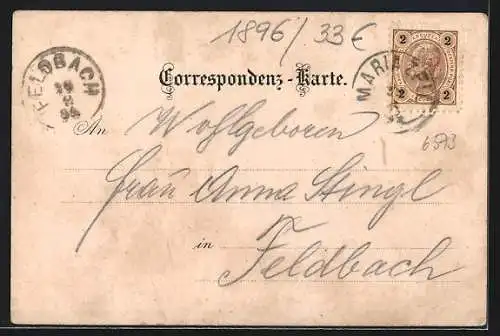 1896/33€
FELDBACH
29
96
2 2
2 2
MARIA
Correspondenz-Karte.
6573
An Wohlgeboren
Frau Anna Stingl
in Feldbach